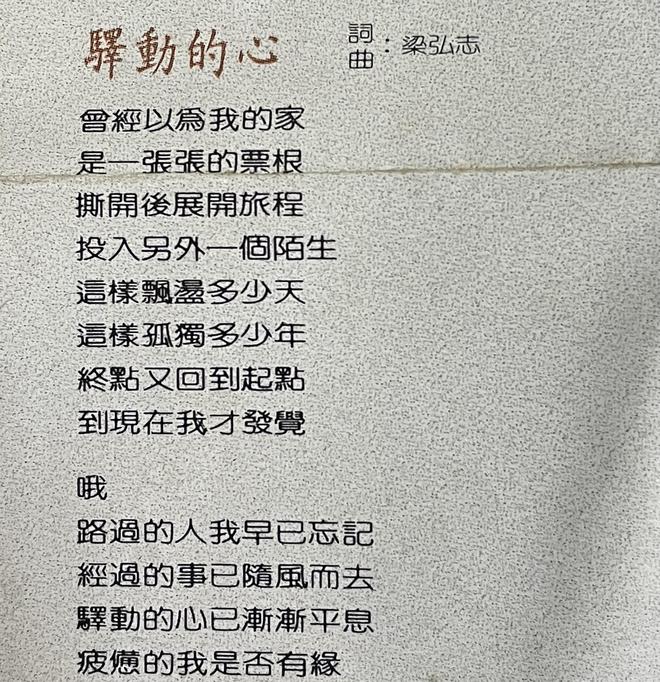 驛動的心
詞曲：梁弘志
曾經以為我的家
是一張張的票根
撕開後展開旅程
投入另外一個陌生
這樣飄盪多少天
這樣孤獨多少年
終點又回到起點
到現在我才發覺
哦
路過的人我早已忘記
經過的事已隨風而去
驛動的心已漸漸平息
疲憊的我是否有緣